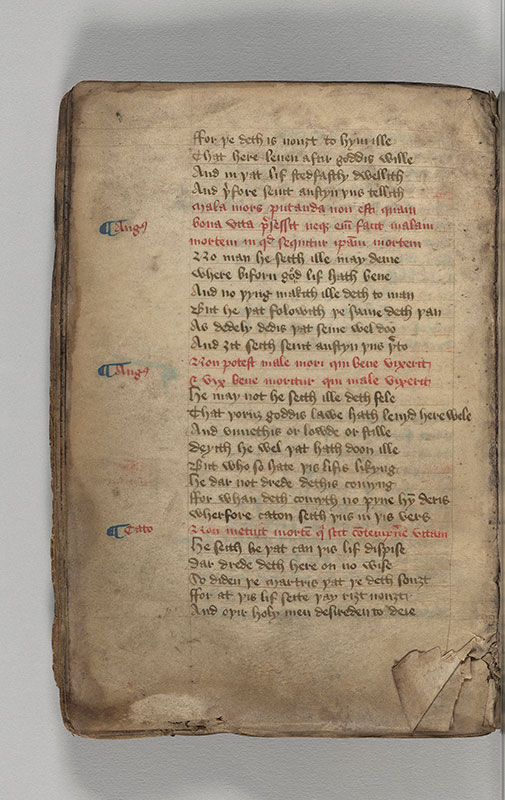 ffor ye deth is nouȝt to hym ille
That here leuen aftir goddis wille
And in yat lif stedfastly dwellith
And yfore seint austyn yus tellith
Mala mors putanda non est quam
¶ Augꝰ
bona vita p̃cessit neqꝫ em̃ facit malam
mortem ni qd̃ sequitur ip̃am mortem
No man he seith ille may deiue
Where biforn gōd lif hath bene
And no yyng makith ille deth to man
But he yat folowith ye same deth yan
As dedely dedis yat seme wel doo
And ȝit seith seint austyn yus yto
Non potest male mori qui bene vixerit
¶ Augꝰ
& vix bene moritur qui male vixerit
He may not he seith ille deth fele
That yoruȝ goddis lawe hath lenyd here wele
And vnnethis or lowde or stille
Deyth he wel yat hath doon ille
But who so hate yis lifis likyng
He dar not drede dethis comyng
ffor whan deth comyth no pyne hỹ deris
Wherfore caton seith yus in yis vers
¶ Cato
Non metuit mortẽ qͥ scit cõtempñe vitam
He seith he yat can yis lif dispise
Dar drede deth here on no wise
So diden ye martris yat ye deth souȝt
ffor at yis lif sette yay riȝt nouȝt
And oyir holy men desireden to deie